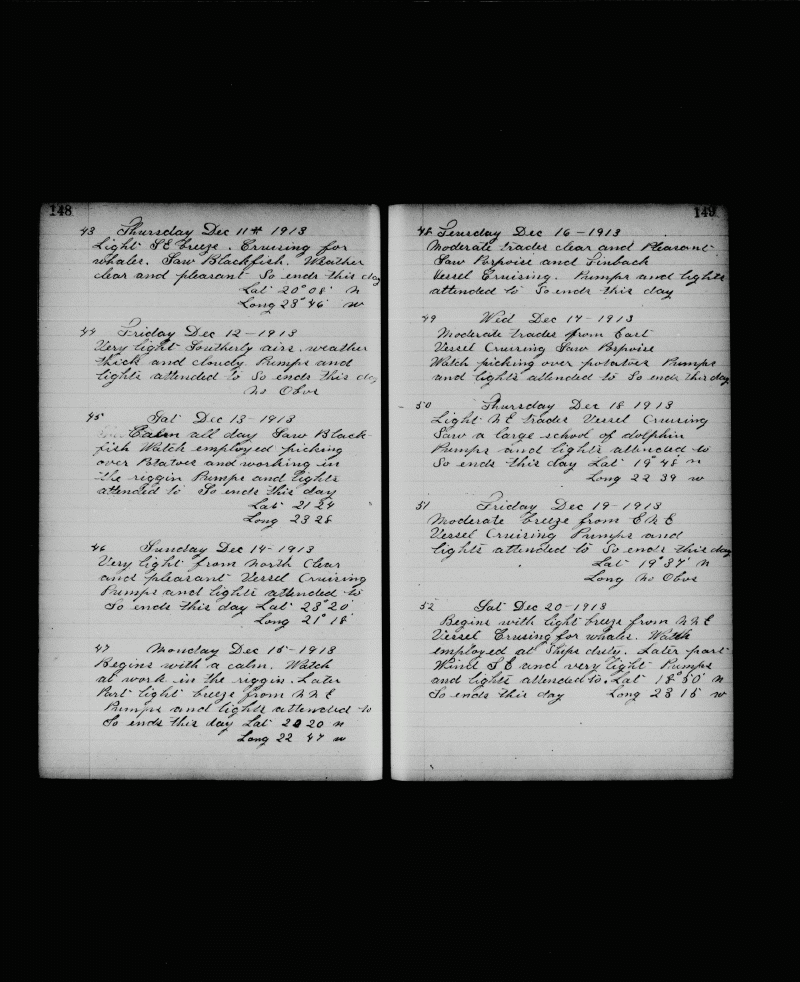 148
43 Thursday Dec 11th 1913
Light SE breeze. Cruising for
whales. Saw Blackfish. Weather
clear and pleasant So ends this day
Lat 20° 08' N
Long 23° 46' W
44 Friday Dec 12-1913
Very light Southerly airs. weather
thick and cloudy. Pumps and
lights attended to So ends this day
No Obos
45 Sat Dec 13-1913
Calm all day Saw Black-
fish Watch employed picking
over Potatoes and working in
the riggin Pumps and lights
attended to So ends this day
Lat 21 24
Long 23 28
46 Sunday Dec 14-1913
Very light from North Clear
and pleasant Vessel Cruising
Pumps and lights attended to
So ends this day Lat 23° 20'
Long 21° 18'
47 Monday Dec 15-1913
Begins with a calm. Watch
at work in the riggin. Later
Part light breeze from NNE
Pumps and lights attended to
So ends this day Lat 20 20 N
Long 22 47 W
149
48 Teusday Dec 16-1913
Moderate trades clear and Pleasant
Saw Porpoise and Finback
Vessel Cruising. Pumps and lights
attended to So ends this day
49 Wed Dec 17-1913
Moderate trades from East
Vessel Cruising Saw Porpoise
Watch picking over potatoes Pumps
and lights attended to So ends this day
50 Thursday Dec 18 1913
Light NE trades Vessel Cruising
Saw a large school of dolphin
Pumps and lights attended to
So ends this day Lat 19° 48' N
Long 22 39 W
51 Friday Dec 19-1913
Moderate breeze from ENE
Vessel Cruising Pumps and
lights attended to So ends this day
Lat 19° 37' N
Long No Obos
52 Sat Dec 20-1913
Begins with light breeze from NNE
Vessel Crusing for whales. Watch
employed at Ships duty. Later part
Wind SE and very light Pumps
and lights attended to. Lat 18° 50' N
So ends this day Long 23 15' W